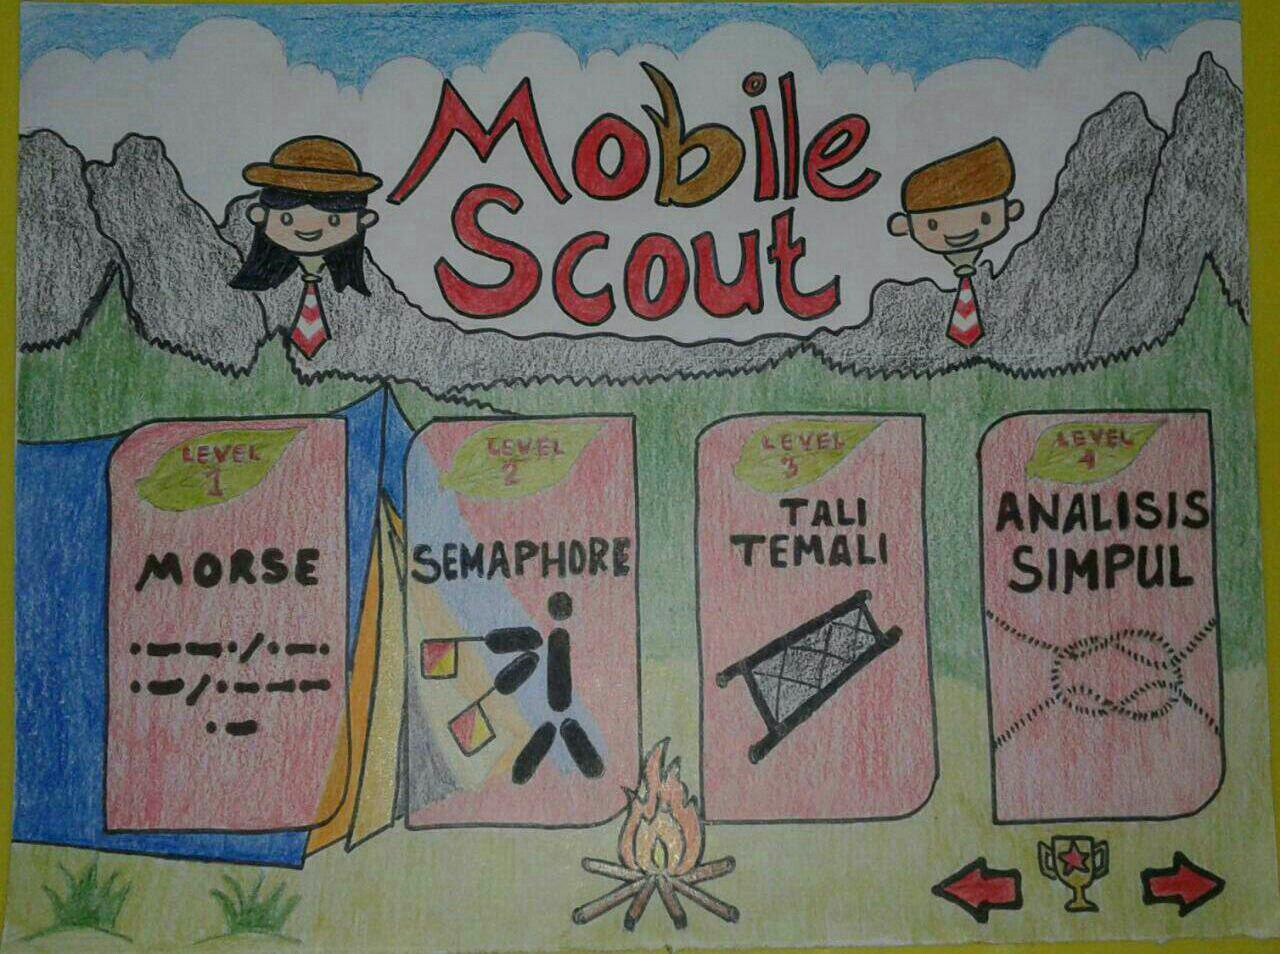 Mobile
Scout
LEVEL
1
MORSE
.--./.-.
.-/.---
.-
LEVEL
2
SEMAPHORE
LEVEL
3
TALI
TEMALI
LEVEL
4
ANALISIS
SIMPUL